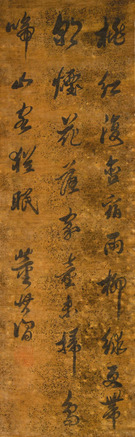 桃红復含宿雨柳绿更带
朝烟花落家童未掃鸟
啼山客猶眠　董其昌